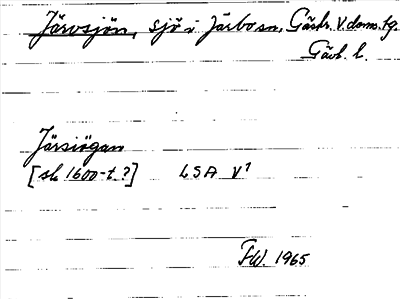 Järvsjön, sjö i Järbo sn, Gästr. V. doms. tg.
Gävl. l.
Järsiögan
[sl. 1600-t.?] LSA V¹
FW. 1965